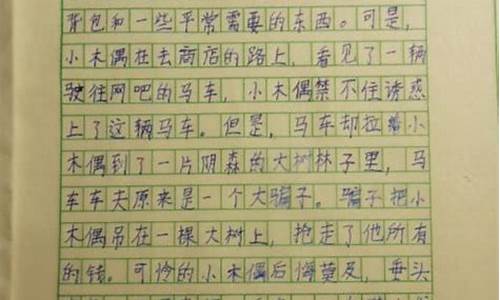 背包和一些平常需要的东西。可是,
小木偶在去商店的路上,看见了一辆
驶往网吧的马车,小木偶禁不住诱惑
上了这辆马车。但是,马车却拉着小
木偶到了一片阴森的大树林子里,马
车车夫原来是一个大骗子。骗子把小
木偶吊在一棵大树上,抢走了他所有
的钱。可怜的小木偶后悔莫及,垂头